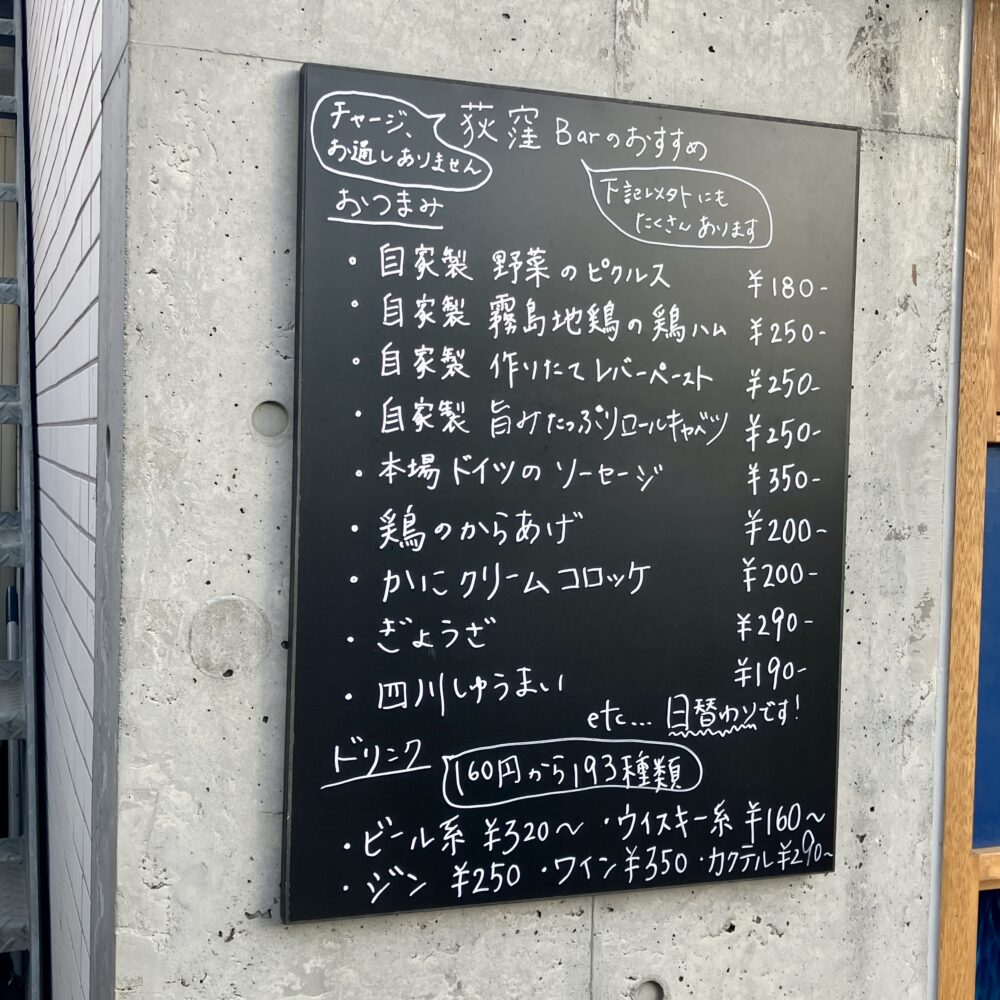 チャージ、
お通しありません
荻窪 Barのおすすめ
下記以外にも
たくさんあります
おつまみ
・自家製 野菜のピクルス ¥180-
・自家製 霧島地鶏の鶏ハム ¥250-
・自家製 作りたてレバーペースト ¥250-
・自家製 旨みたっぷりロールキャベツ ¥250-
・本場ドイツのソーセージ ¥350-
・鶏のからあげ ¥200-
・かにクリームコロッケ ¥200-
・ぎょうざ ¥290-
・四川しゅうまい ¥190-
etc... 日替わりです!
ドリンク 160円から193種類
・ビール系 ¥320〜 ・ウイスキー系 ¥160〜
・ジン ¥250 ・ワイン ¥350 ・カクテル ¥290〜